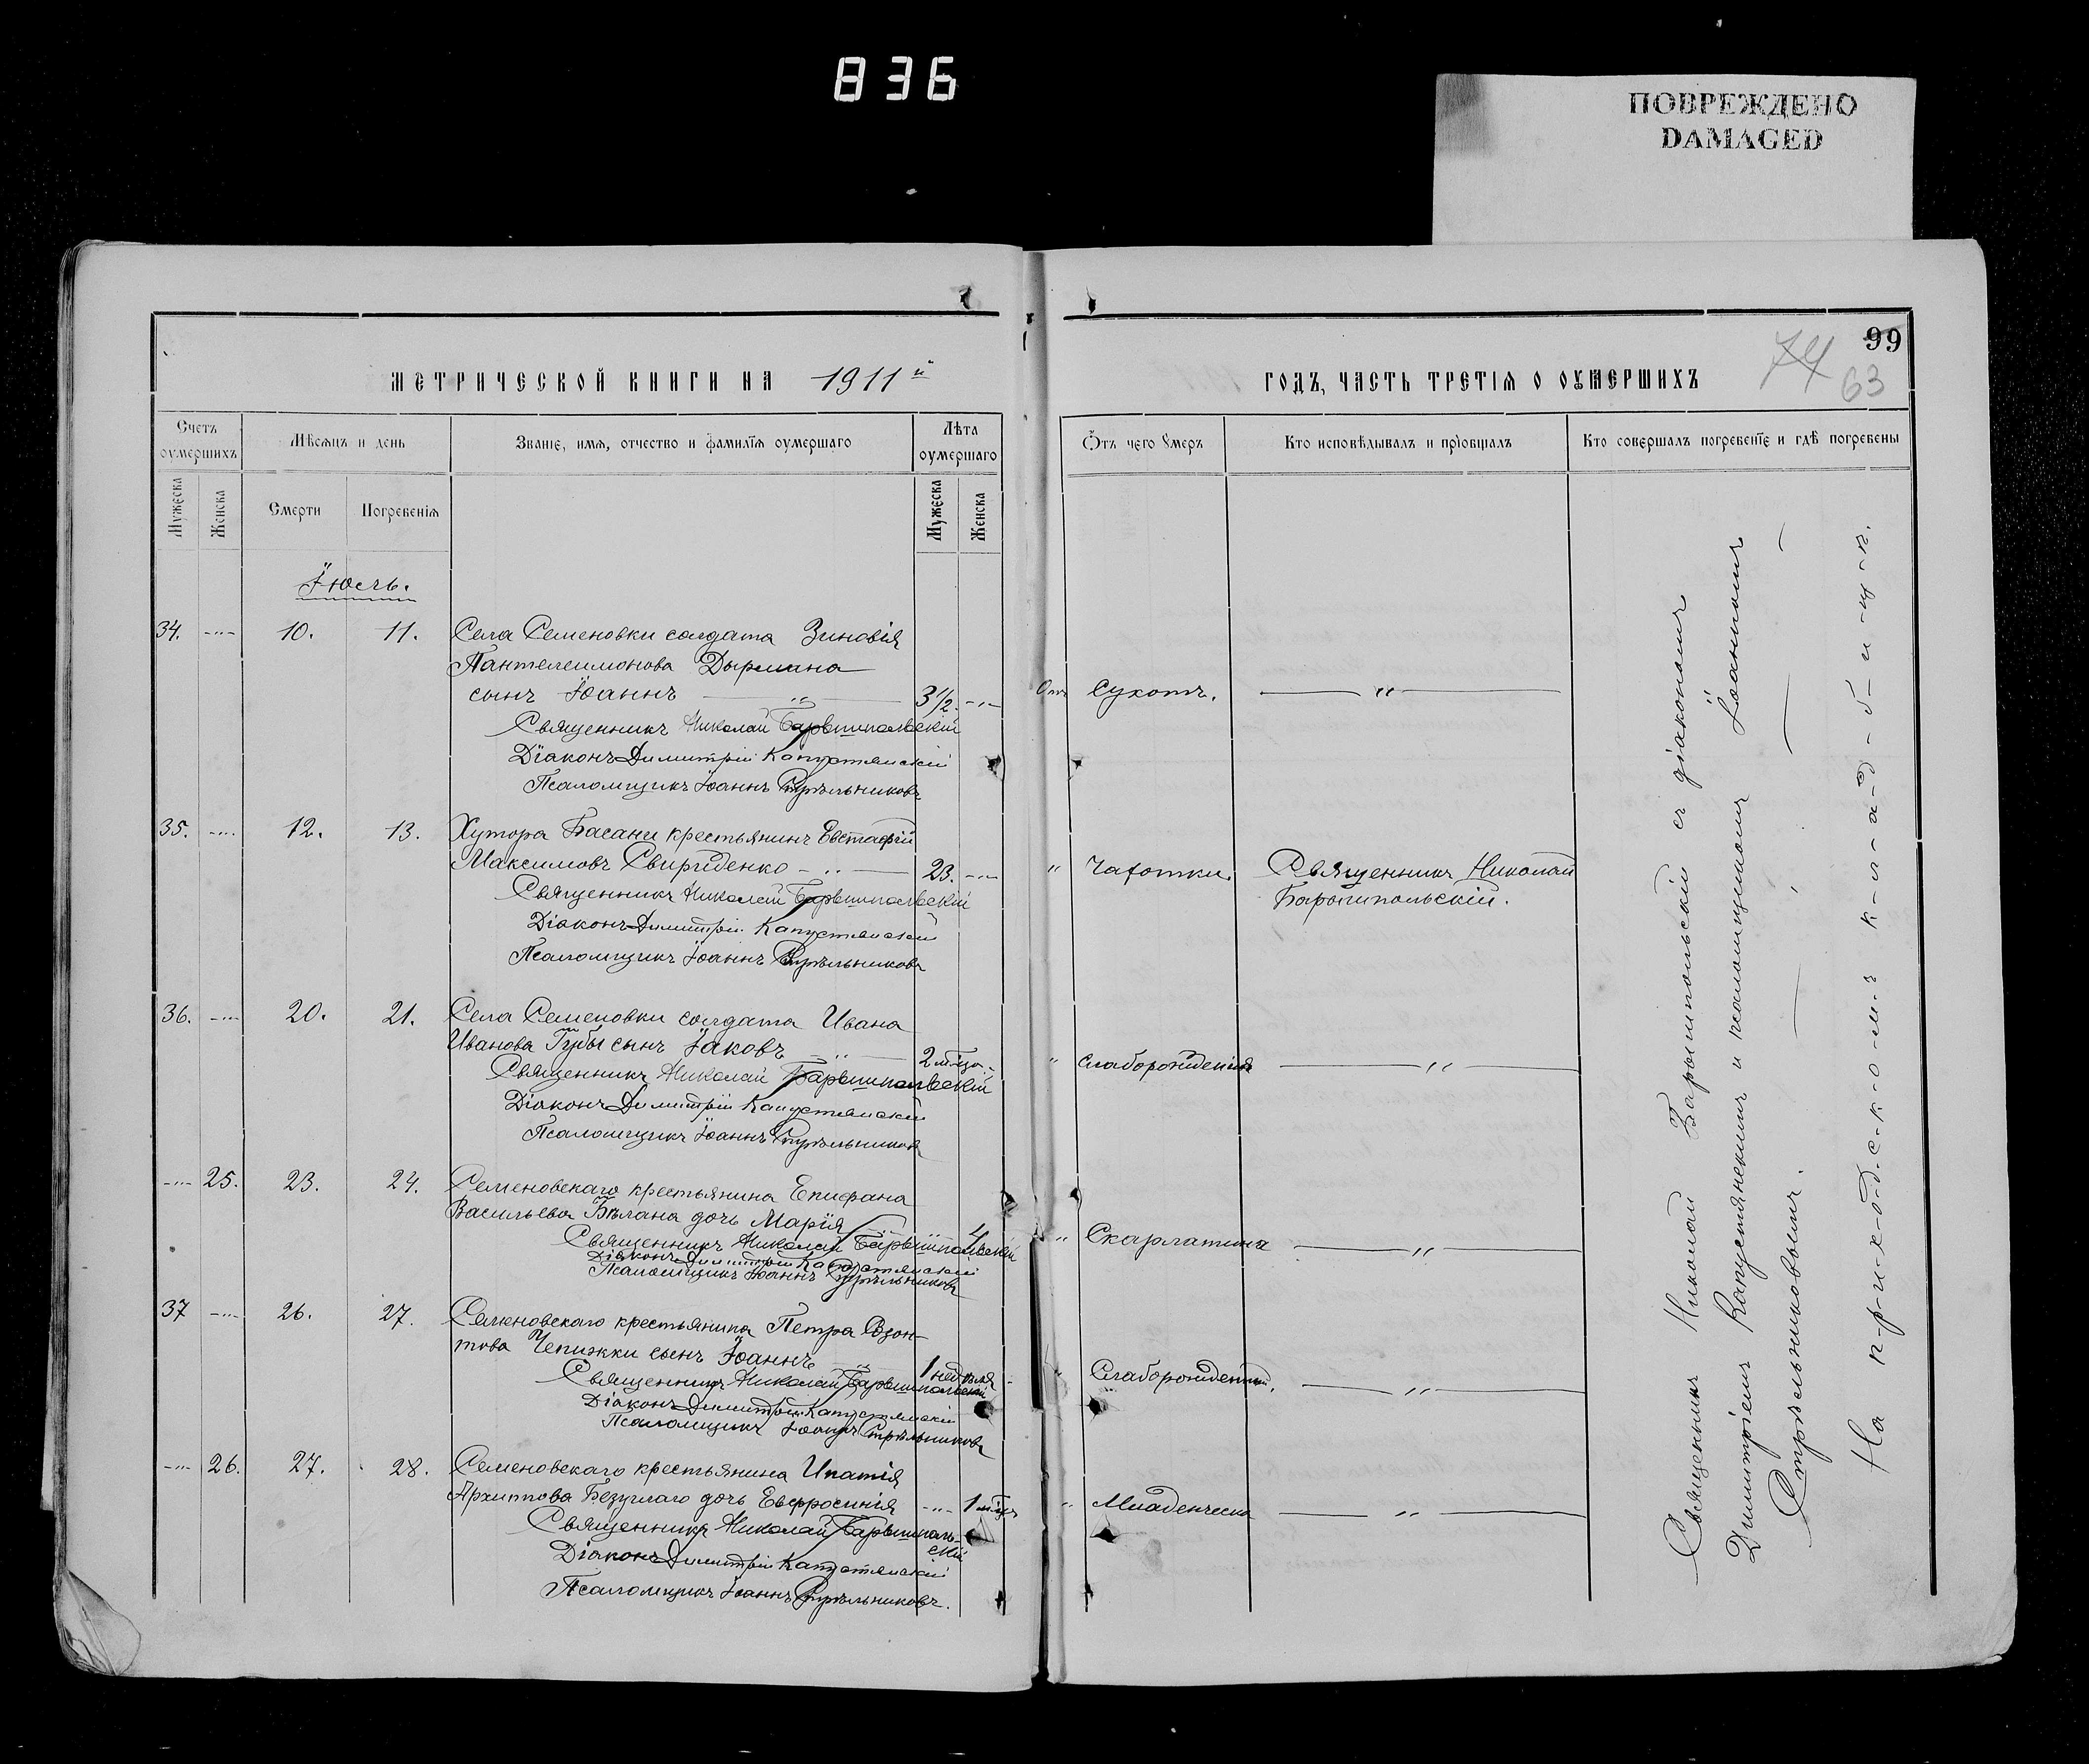 836
ПОВРЕЖДЕНО
DAMAGED
99
74
63
МЕТРИЧЕСКОЙ КНИГИ НА 1911й
ГОДЪ, ЧАСТЬ ТРЕТІЯ О ОУМЕРШИХЪ
Счетъ оумершихъ
Мѣсяцъ и день
Званіе, имя, отчество и фамилія оумершаго
Лѣта оумершаго
Отъ чего умеръ
Кто исповѣдывалъ и пріобщалъ
Кто совершалъ погребеніе и гдѣ погребены
Мужеска
Женска
Смерти
Погребенія
Мужеска
Женска
Іюль.
34. -"- 10. 11. Села Семеновки солдата Зиновія
Пантелеимонова Дырмана
сынъ Іоаннъ — " — 3 1/2. -"- Отъ Сухотъ. — " —
Священникъ Николай Барышпольскій
Діаконъ Димитрій Капустянскій
Псаломщикъ Іоаннъ Стрѣльниковъ
35. -"- 12. 13. Хутора Басани крестьянинъ Евстафій
Максимовъ Свириденко -"- 23. -"- " Чахотки. Священникъ Николай
Барышпольскій.
Священникъ Николай Барышпольскій
Діаконъ Димитрій Капустянскій
Псаломщикъ Іоаннъ Стрѣльниковъ
36. -"- 20. 21. Села Семеновки солдата Ивана
Иванова Губы сынъ Іаковъ -"- 2 мѣсяц. " Слаборожденія — " —
Священникъ Николай Барышпольскій
Діаконъ Димитрій Капустянскій
Псаломщикъ Іоаннъ Стрѣльниковъ
-"- 25. 23. 24. Семеновскаго крестьянина Епифана
Васильева Бѣлана дочь Марія 4 " Скарлатина — " —
Священникъ Николай Барышпольскій
Діаконъ Димитрій Капустянскій
Псаломщикъ Іоаннъ Стрѣльниковъ
37 -"- 26. 27. Семеновскаго крестьянина Петра
Чепижки сынъ Іоаннъ 1 недѣля " Слаборожденный. — " —
Священникъ Николай Барышпольскій
Діаконъ Димитрій Капустянскій
Псаломщикъ Іоаннъ Стрѣльниковъ
-"- 26. 27. 28. Семеновскаго крестьянина Ипатія
Архиппова Безуглаго дочь Евфросинія -"- 1 мѣсц. " Младенческа — " —
Священникъ Николай Барышполь-
скій
Діаконъ Димитрій Капустянскій
Псаломщикъ Іоаннъ Стрѣльниковъ.
Священникъ Николай Барышпольскій съ діакономъ
Димитріемъ Капустянскимъ и псаломщикомъ Іоанномъ
Стрѣльниковымъ. — " —
На п-р-и-х-о-д-с-к-о-м-ъ к-л-а-д-б-и-щ-ѣ.